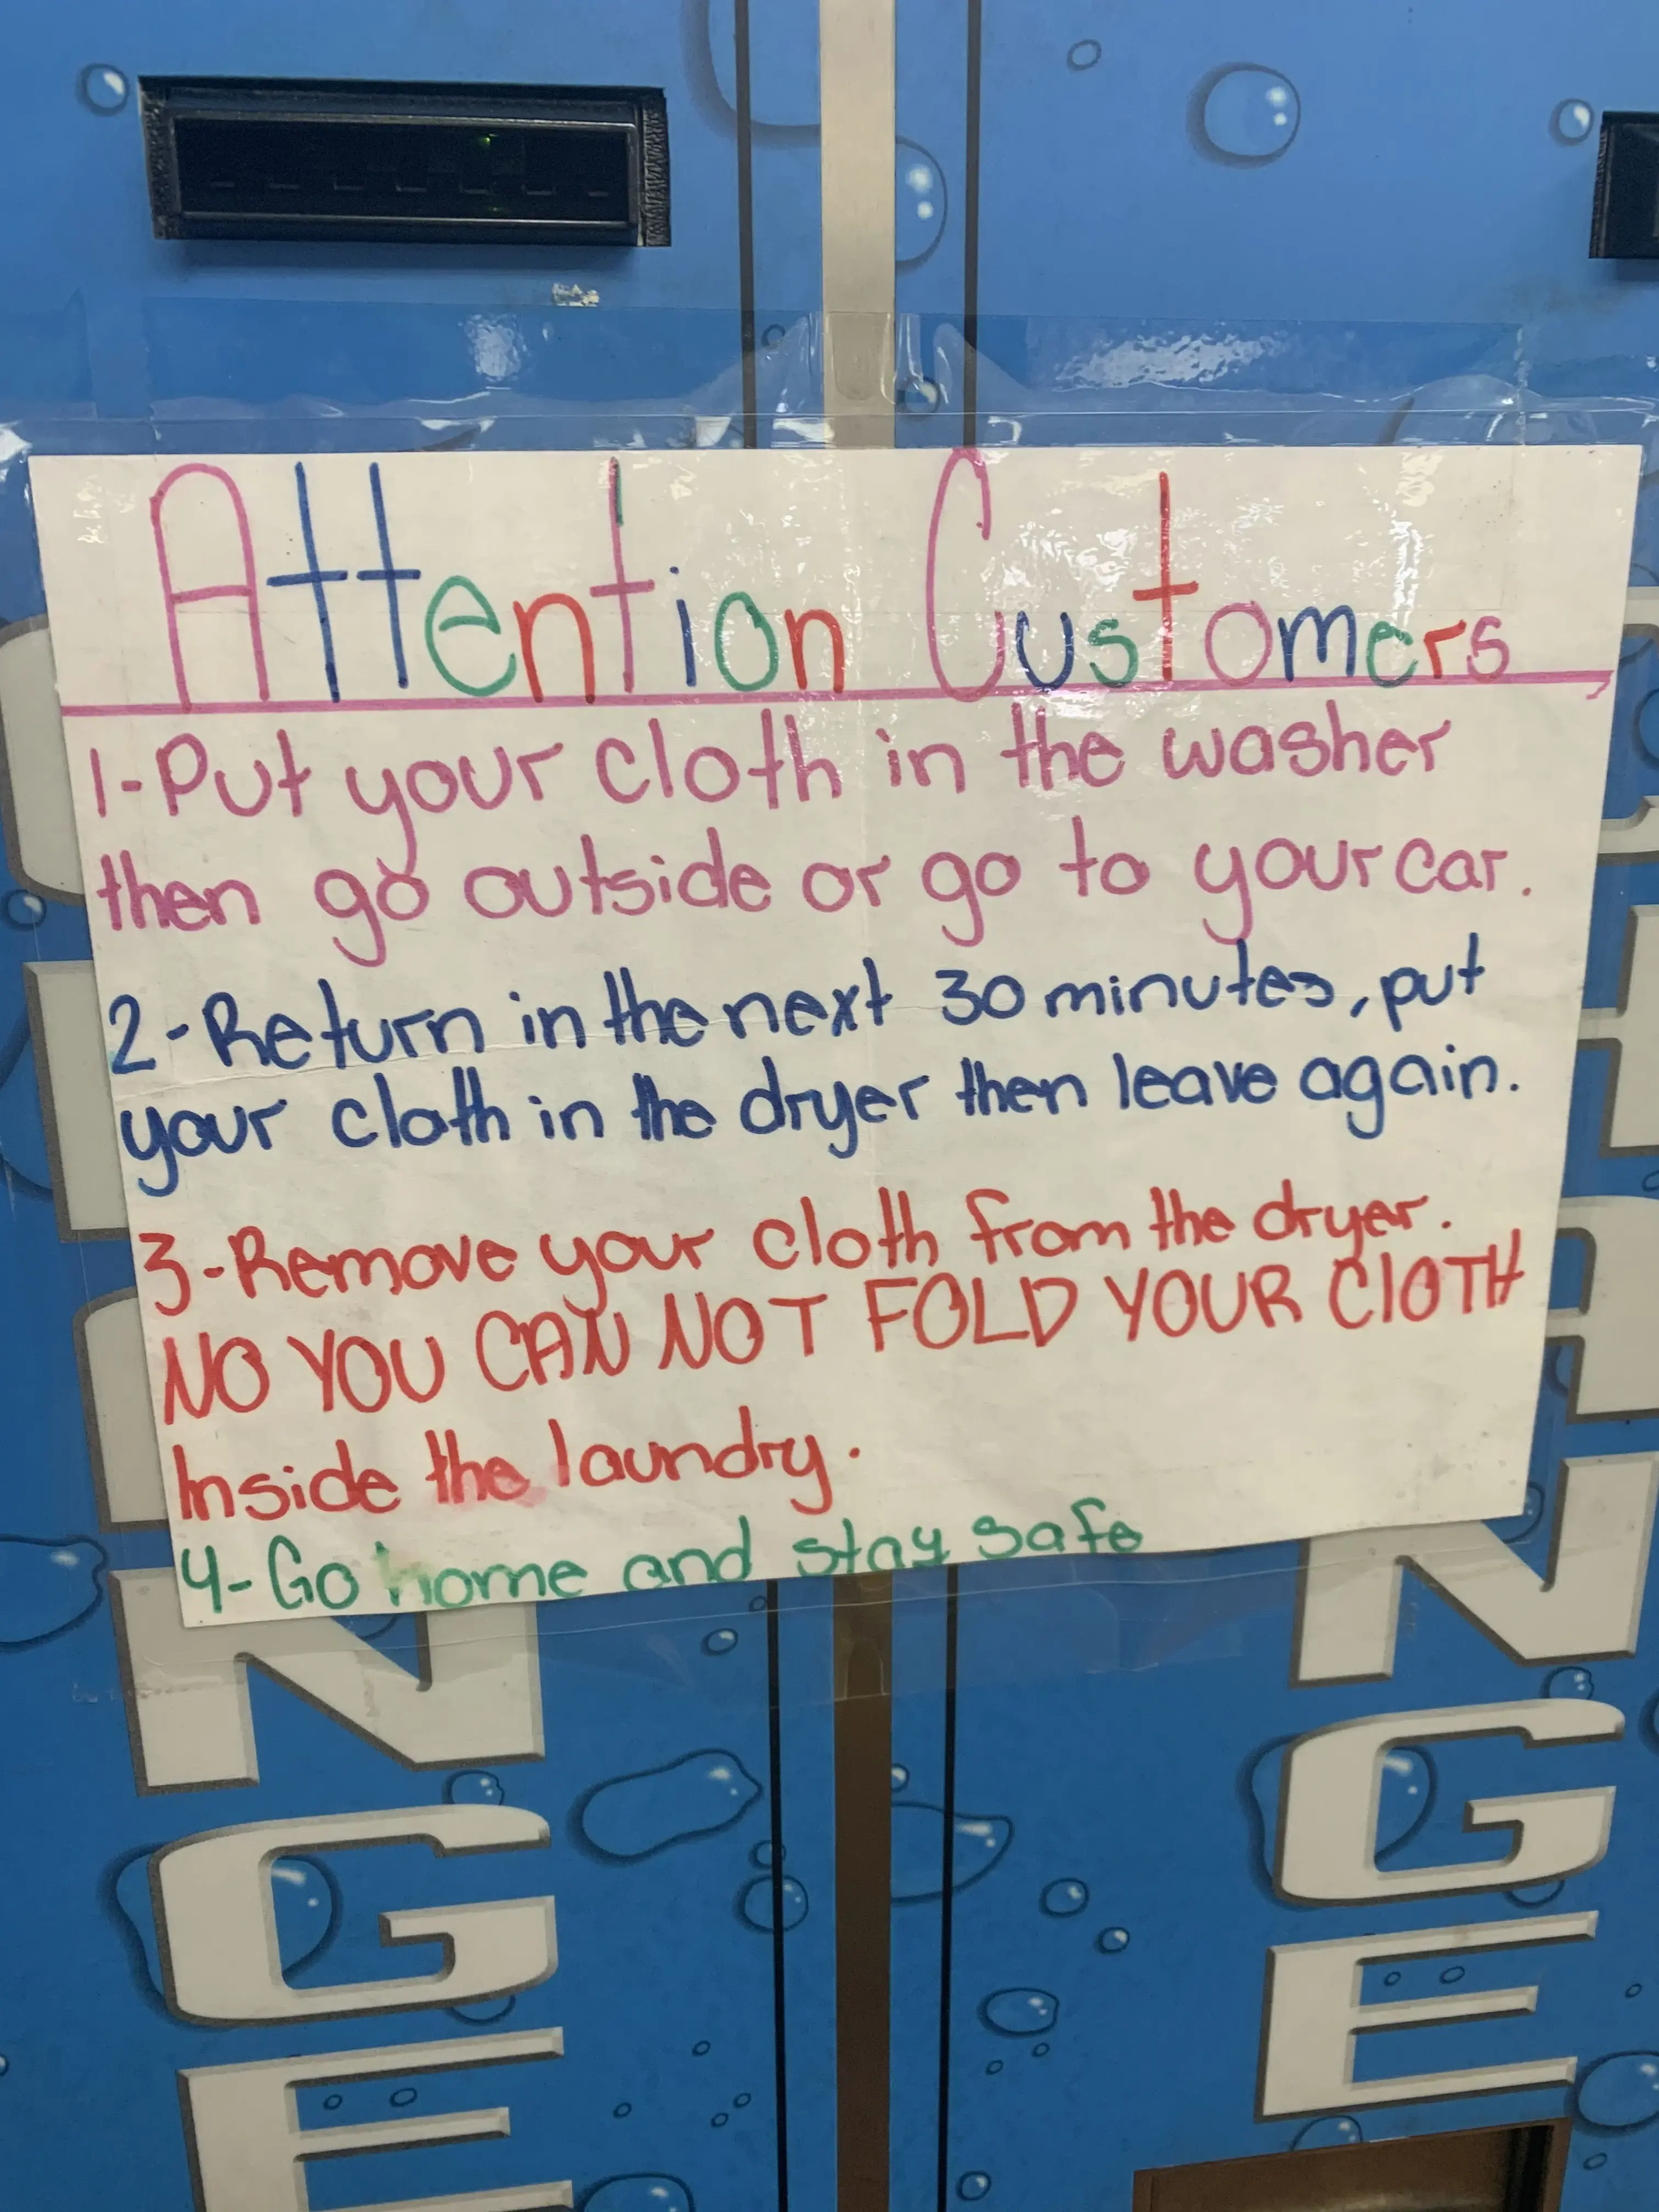 Attention Customers
1-Put your cloth in the washer
then go outside or go to your car.
2-Return in the next 30 minutes, put
your cloth in the dryer then leave again.
3-Remove your cloth from the dryer.
NO YOU CAN NOT FOLD YOUR ClOTH
Inside the laundry.
4-Go home and stay safe
NGE
NGE